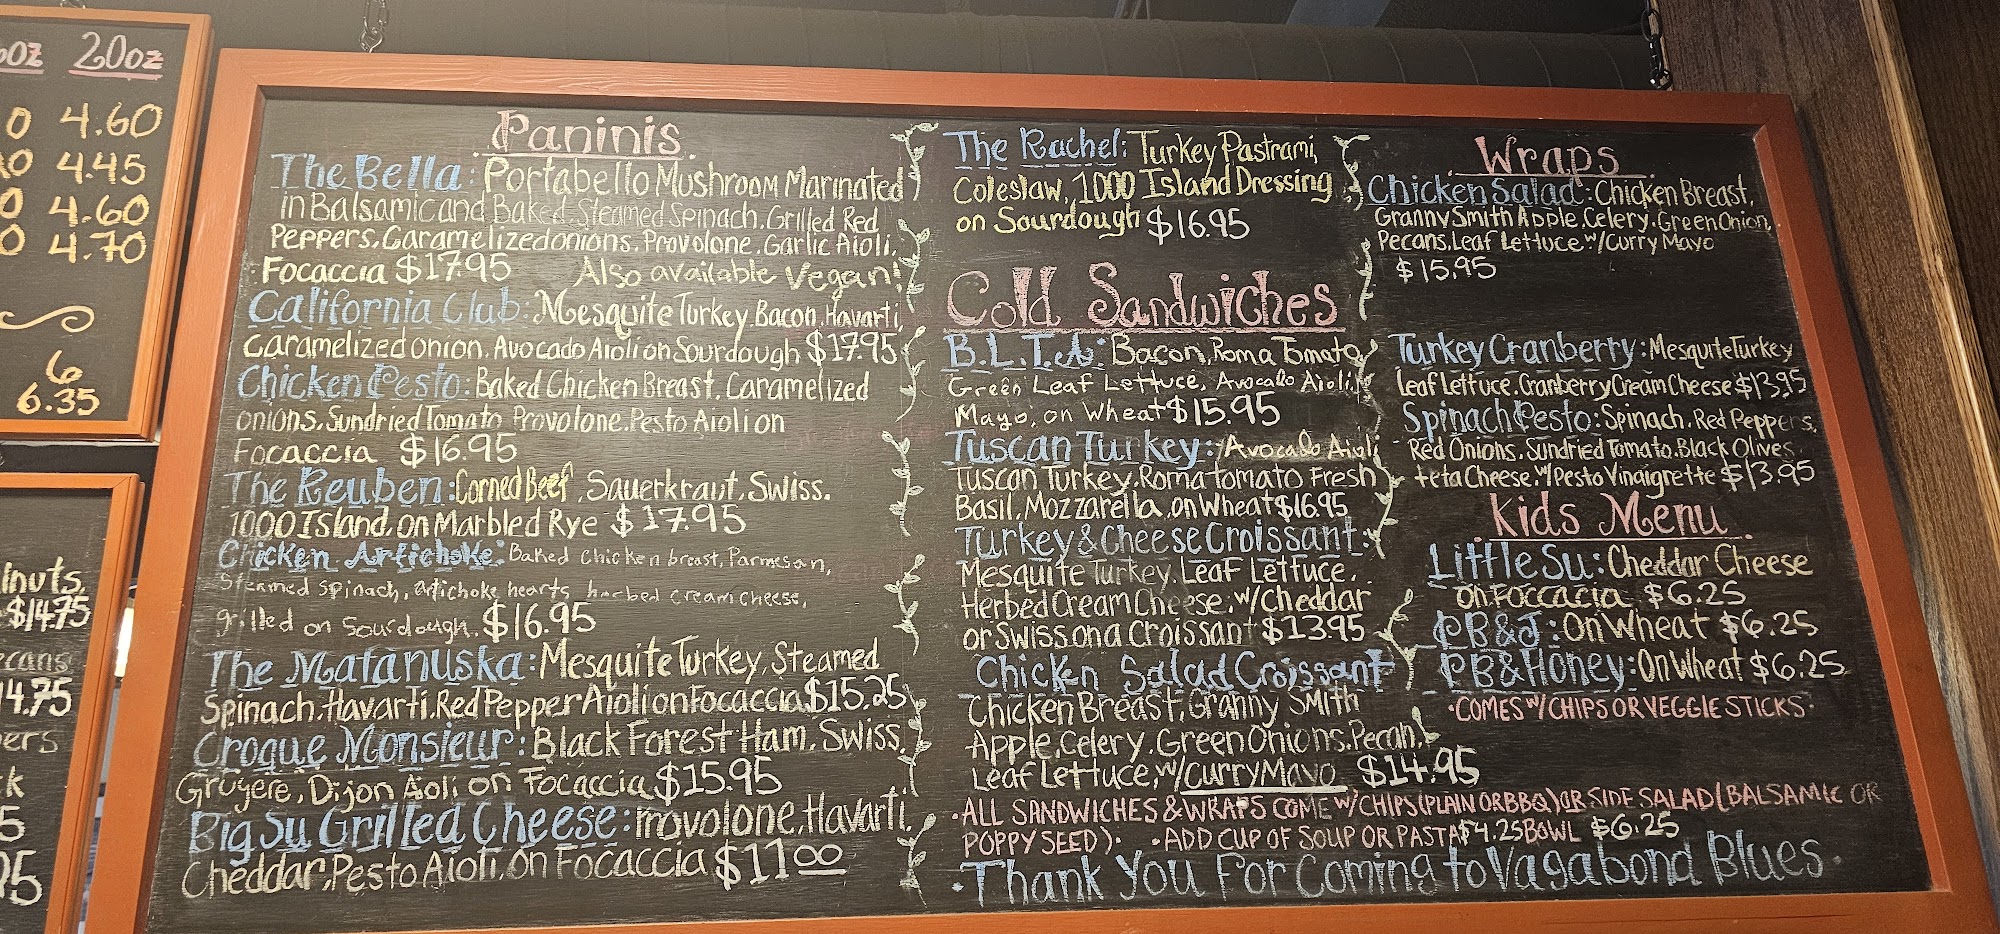 20oz
4.60
4.45
4.60
4.70
6
6.35
$14.75
Paninis
The Bella: Portabello Mushroom Marinated
in Balsamic and Baked. Steamed Spinach. Grilled Red
Peppers. Caramelized onions. Provolone. Garlic Aioli.
Focaccia $17.95 Also available Vegan!
California Club: Mesquite Turkey. Bacon. Havarti
Caramelized onion. Avocado Aioli on Sourdough $17.95
Chicken Pesto: Baked Chicken Breast. Caramelized
onions. Sundried Tomato Provolone. Pesto Aioli on
Focaccia $16.95
The Reuben: Corned Beef, Sauerkraut, Swiss.
1000 Island, on Marbled Rye $17.95
Chicken Artichoke: Baked chicken breast, Parmesan,
Steamed spinach, artichoke hearts herbed cream cheese,
grilled on Sourdough, $16.95
The Matanuska: Mesquite Turkey, Steamed
Spinach. Havarti. Red Pepper Aioli on Focaccia $15.25
Croque Monsieur: Black Forest Ham, Swiss,
Gruyere, Dijon Aoli on Focaccia $15.95
Big Su Grilled Cheese: Provolone, Havarti,
Cheddar, Pesto Aioli, on Focaccia $11.00
The Rachel: Turkey Pastrami,
Coleslaw, 1000 Island Dressing
on Sourdough $16.95
Cold Sandwiches
B.L.T.A: Bacon, Roma Tomato
Green Leaf Lettuce, Avocado Aioli,
Mayo, on Wheat $15.95
Tuscan Turkey: Avocado Aioli
Tuscan Turkey. Roma tomato Fresh
Basil, Mozzarella, on Wheat $16.95
Turkey & Cheese Croissant:
Mesquite Turkey, Leaf Lettuce,
Herbed Cream Cheese, w/ Cheddar
or Swiss on a Croissant $13.95
Chicken Salad Croissant
Chicken Breast, Granny Smith
Apple, Celery. Green Onions. Pecan,
Leaf Lettuce, w/ Curry Mayo $14.95
Wraps
Chicken Salad: Chicken Breast,
Granny Smith Apple, Celery, Green Onion,
Pecans, Leaf Lettuce w/ Curry Mayo
$15.95
Turkey Cranberry: Mesquite Turkey
Leaf Lettuce. Cranberry Cream Cheese $13.95
Spinach Pesto: Spinach, Red Peppers,
Red Onions, Sundried Tomato, Black Olives
teta Cheese, w/ Pesto Vinaigrette $13.95
Kids Menu
Little Su: Cheddar Cheese
on Foccacia $6.25
PB&J: On Wheat $6.25
PB & Honey: On Wheat $6.25
•COMES W/ CHIPS OR VEGGIE STICKS•
•ALL SANDWICHES & WRAPS COME W/ CHIPS (PLAIN OR BBQ) OR SIDE SALAD (BALSAMIC OR
POPPY SEED)• •ADD CUP OF SOUP OR PASTA $4.25 BOWL $6.25
•Thank You For Coming to Vagabond Blues•